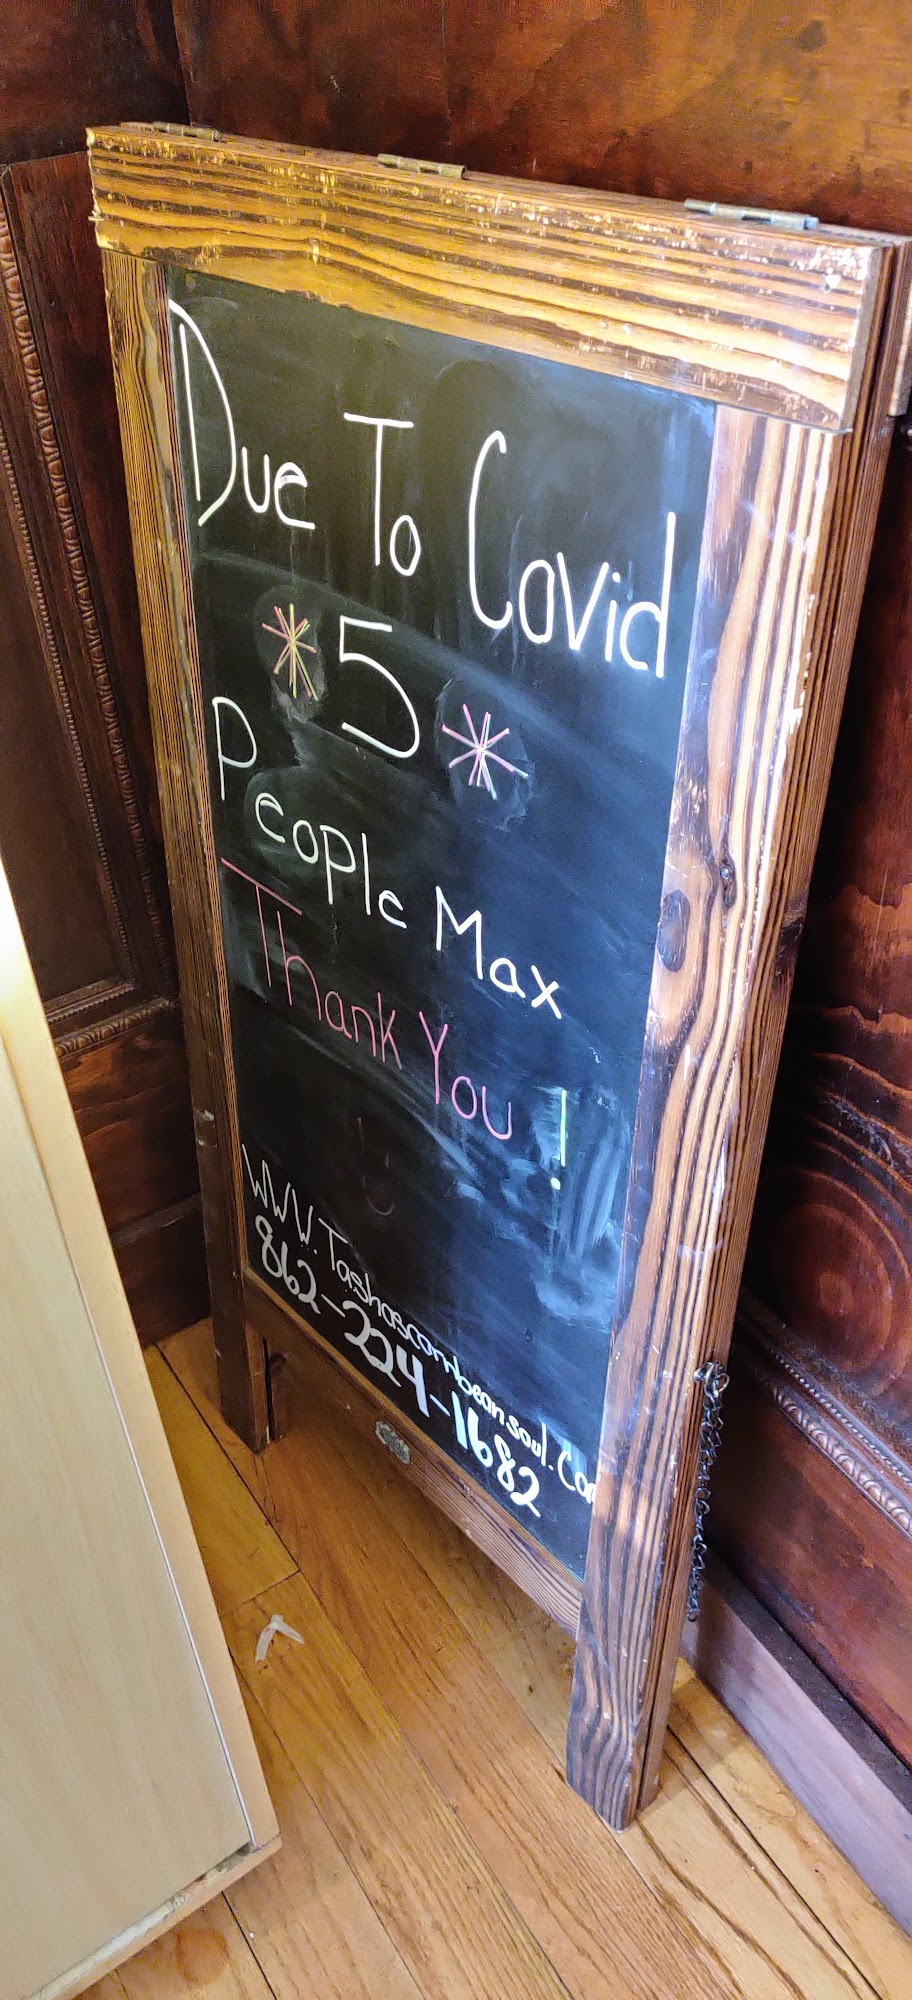 Due To Covid
*5*
People Max
Thank You !
WWW.Tashascarribeansoul.Com
862-224-1682